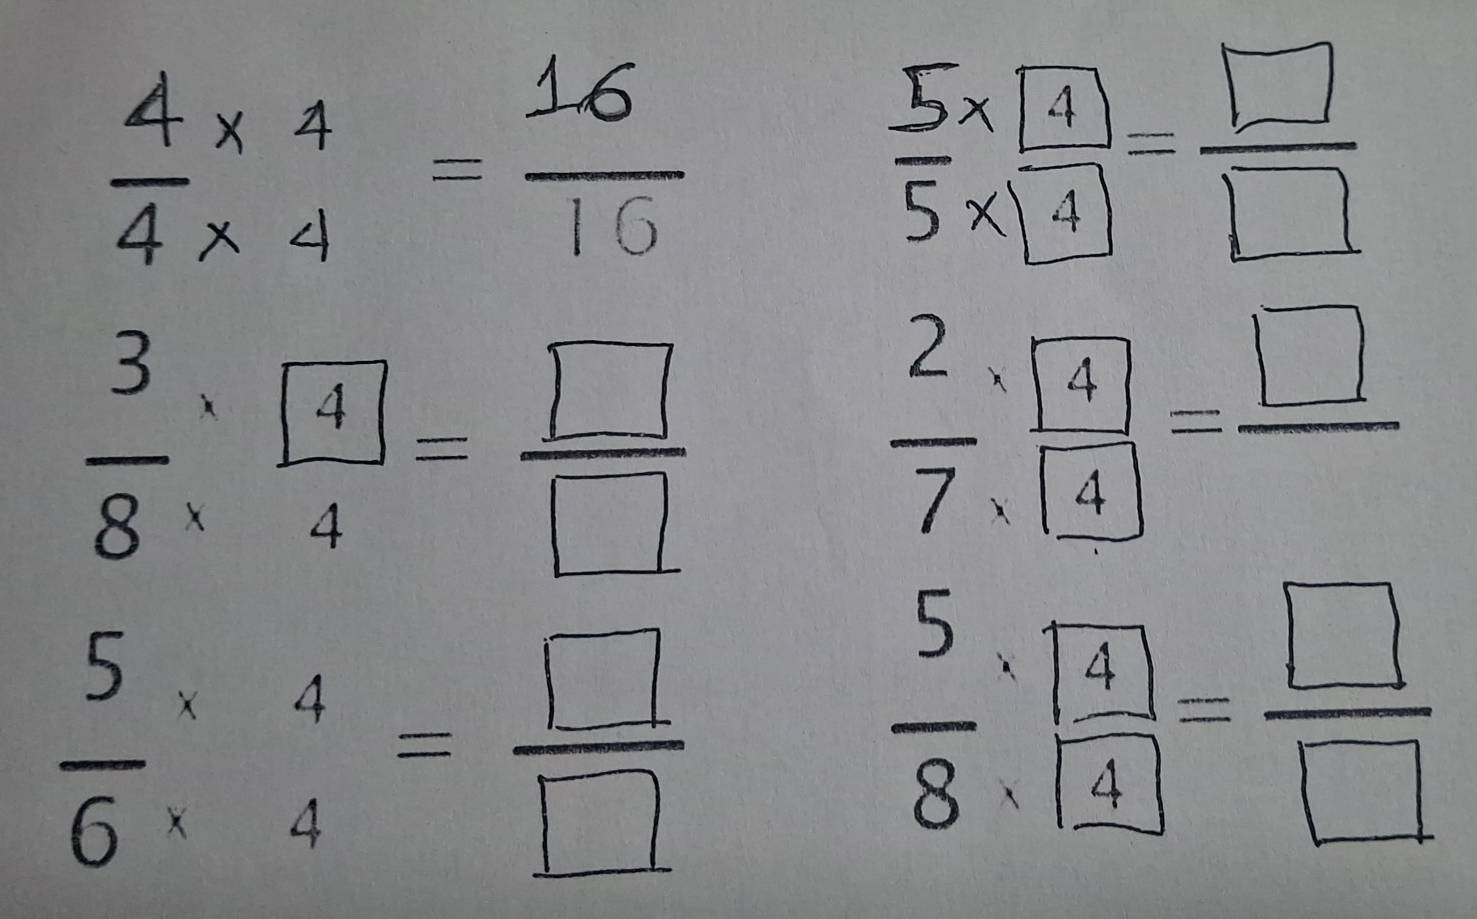 4 × 4 = 16
4 × 4 16
5 × 4 =
5 × 4
3 × 4 =
8 × 4
2 × 4 =
7 × 4
5 × 4 =
6 × 4
5 × 4 =
8 × 4